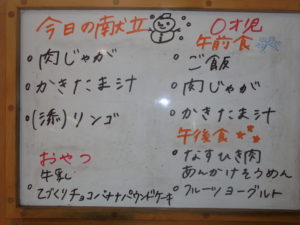 今日の献立
○肉じゃが
○かきたま汁
○(添)リンゴ
おやつ
○牛乳
○てづくりチョコバナナパウンドケーキ
○才児
午前食
○ご飯
○肉じゃが
○かきたま汁
午後食
○なすひき肉
あんかけそうめん
○フルーツヨーグルト